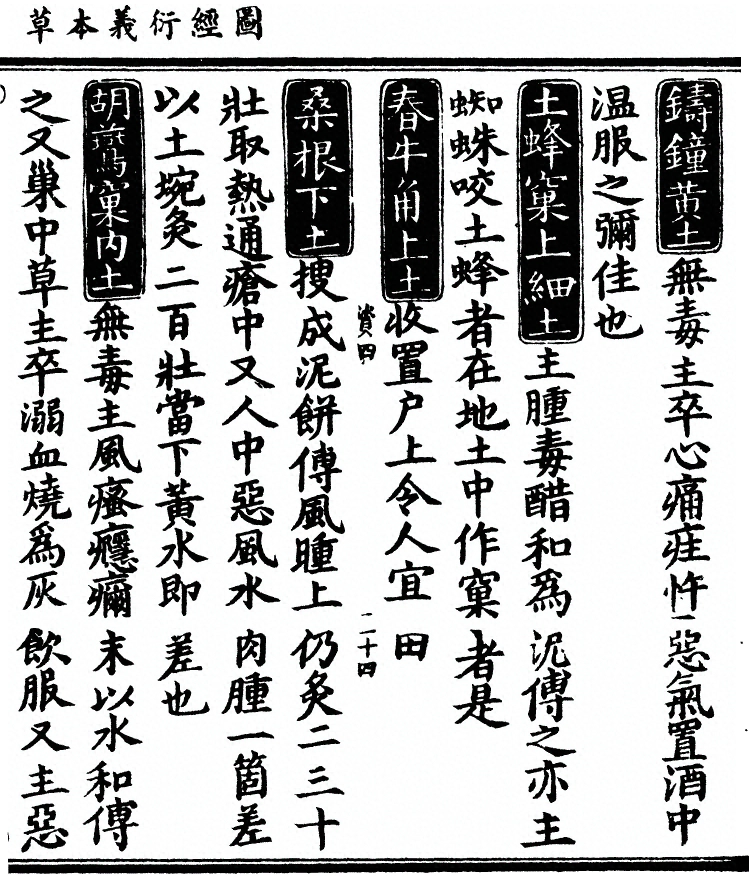 圖經衍義本草
鑄鐘黃土無毒主卒心痛疰忤惡氣置酒中
温服之彌佳也
土蜂窠上細土主腫毒醋和爲泥傅之亦主
蜘蛛咬土蜂者在地土中作窠者是
春牛角上土收置户上令人宜田
資四
二十四
桑根下土搜成泥餅傅風腫上仍灸二三十
壯取熱通瘡中又人中惡風水肉腫一箇差
以土埦灸二百壯當下黃水即差也
胡鷰窠内土無毒主風瘙癮𤺋末以水和傅
之又巢中草主卒溺血燒爲灰飲服又主惡